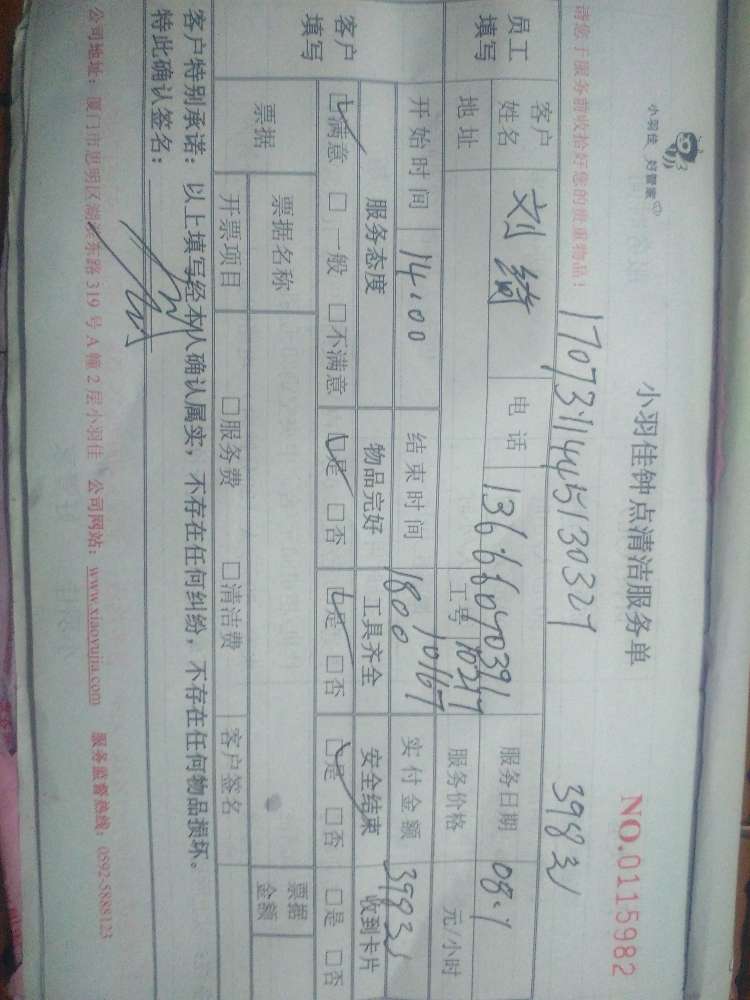 小羽佳 好管家
小羽佳钟点清洁服务单
NO.0115982
请您于服务前收拾好您的贵重物品！
398元
员工填写
客户姓名 刘绮 电话 服务日期 08.1
地址 工号 10217 10167 服务价格 元/小时
开始时间 14:00 结束时间 1800 实付金额 398元
客户填写
服务态度 物品完好 工具齐全 安全结束 收到卡片
☑满意 □一般 □不满意 ☑是 □否 ☑是 □否 ☑是 □否 □是 □否
票据 票据名称 票据金额
开票项目 □服务费 □清洁费 客户签名
客户特别承诺：以上填写经本人确认属实，不存在任何纠纷，不存在任何物品损坏。
特此确认签名：
公司地址：厦门市思明区湖滨东路319号A幢2层小羽佳 公司网站：www.xiaoyujia.com 服务监督热线：0592-5888123